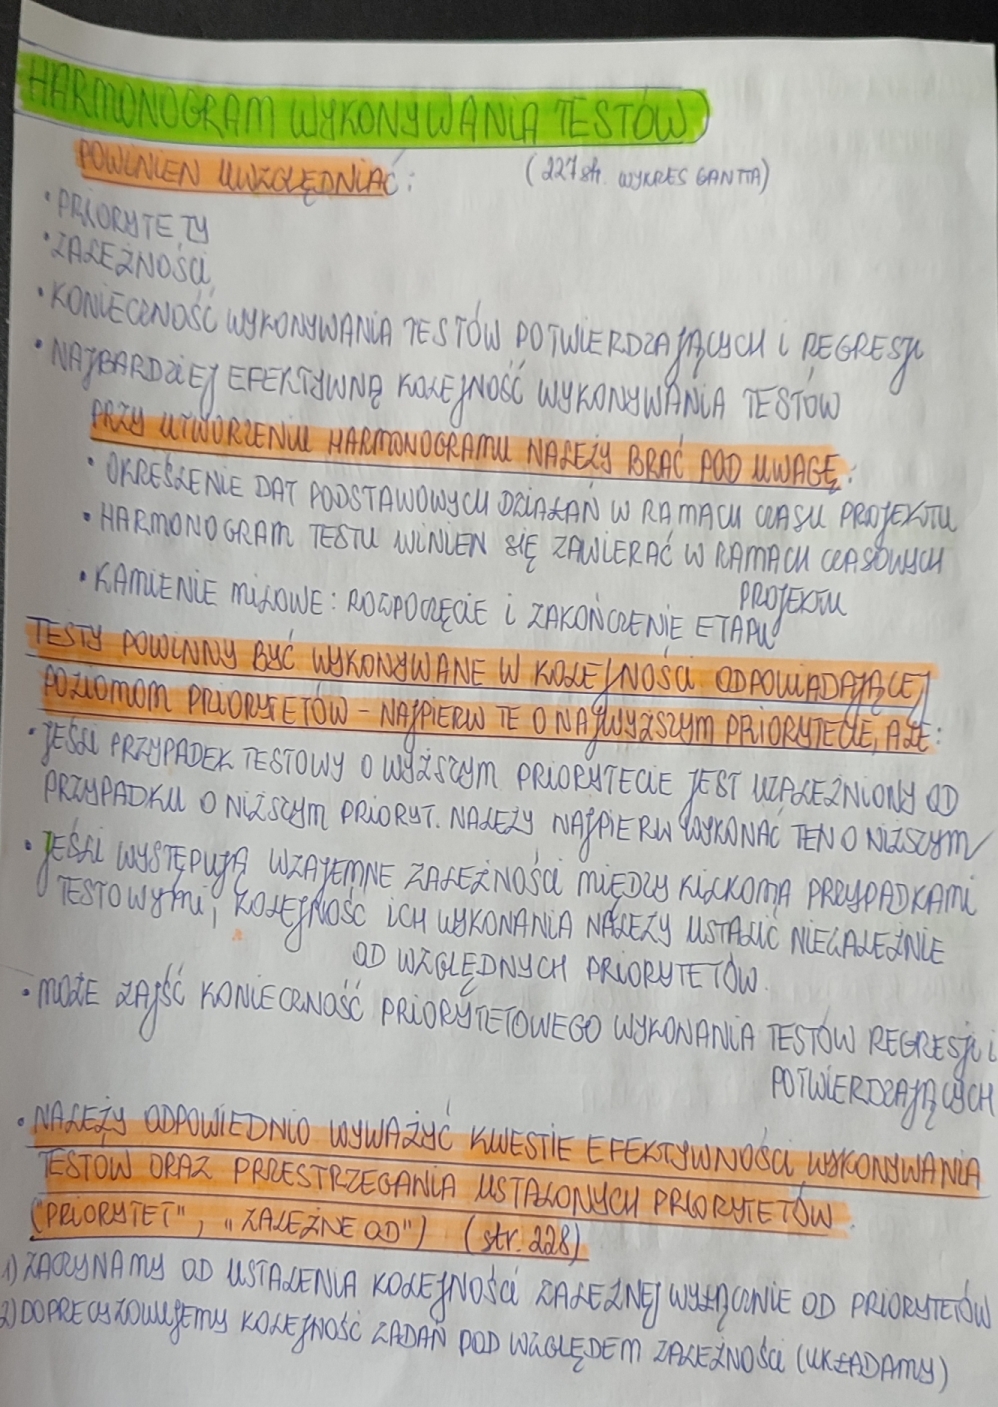 HARMONOGRAM WYKONYWANIA TESTÓW
POWINIEN UWZGLĘDNIAĆ:
(227 str. WYKRES GANTTA)
• PRIORYTETY
• ZALEŻNOŚCI
• KONIECZNOŚĆ WYKONYWANIA TESTÓW POTWIERDZAJĄCYCH I REGRESJI
• NAJBARDZIEJ EFEKTYWNĄ KOLEJNOŚĆ WYKONYWANIA TESTÓW
PRZY UTWORZENIU HARMONOGRAMU NALEŻY BRAĆ POD UWAGĘ:
• OKREŚLENIE DAT PODSTAWOWYCH DZIAŁAŃ W RAMACH CZASU PROJEKTU
• HARMONOGRAM TESTU WINIEN SIĘ ZAWIERAĆ W RAMACH CZASOWYCH
PROJEKTU
• KAMIENIE MILOWE: ROZPOCZĘCIE I ZAKOŃCZENIE ETAPU
TESTY POWINNY BYĆ WYKONYWANE W KOLEJNOŚCI ODPOWIADAJĄCEJ
POZIOMOM PRIORYTETÓW - NAJPIERW TE O NAJWYŻSZYM PRIORYTECIE, ALE:
• JEŚLI PRZYPADEK TESTOWY O WYŻSZYM PRIORYTECIE JEST UZALEŻNIONY OD
PRZYPADKU O NIŻSZYM PRIORYT. NALEŻY NAJPIERW WYKONAĆ TEN O NIŻSZYM
• JEŚLI WYSTĘPUJĄ WZAJEMNE ZALEŻNOŚCI MIĘDZY KILKOMA PRZYPADKAMI
TESTOWYMI, KOLEJNOŚĆ ICH WYKONANIA NALEŻY USTALIĆ NIEZALEŻNIE
OD WZGLĘDNYCH PRIORYTETÓW.
• MOŻE ZAJŚĆ KONIECZNOŚĆ PRIORYTETOWEGO WYKONANIA TESTÓW REGRESJI I
POTWIERDZAJĄCYCH
• NALEŻY ODPOWIEDNIO WYWAŻYĆ KWESTIE EFEKTYWNOŚCI WYKONYWANIA
TESTÓW ORAZ PRZESTRZEGANIA USTALONYCH PRIORYTETÓW
("PRIORYTET", "ZALEŻNE OD") (str. 228)
1) ZACZYNAMY OD USTALENIA KOLEJNOŚCI ZALEŻNEJ WYŁĄCZNIE OD PRIORYTETÓW
2) DOPRECYZOWUJEMY KOLEJNOŚĆ ZADAŃ POD WZGLĘDEM ZALEŻNOŚCI (UKŁADAMY)